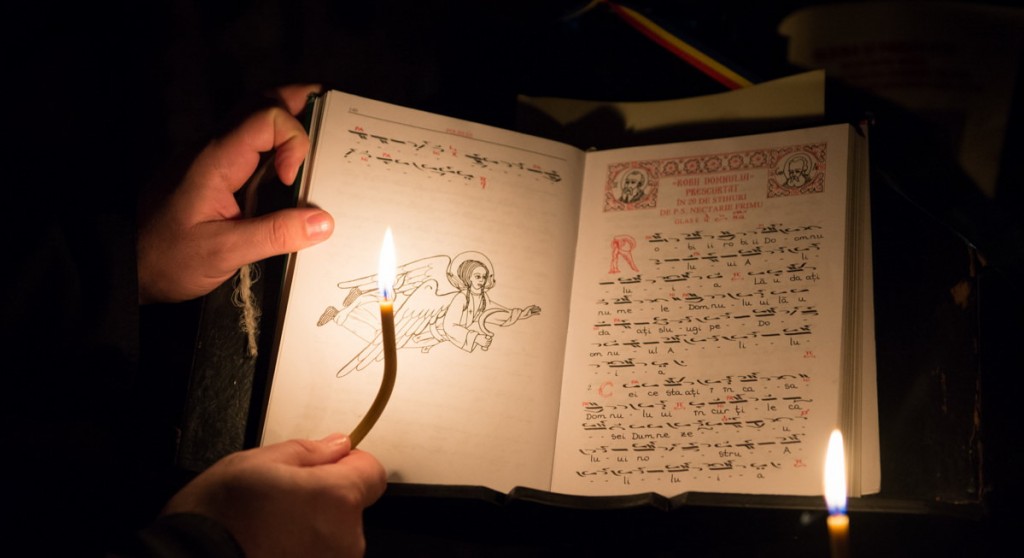 «ROBII DOMNULUI»
PRESCURTAT
ÎN 20 DE STIHURI
DE P.S. NECTARIE PRIMU
GLAS
R bi i ro bi i Do omnu
lu ui A li
lu i a Lă u da ați
nu me le Domnu lu ui lă u
da ați slu ugi pe Do
om nu ul A li lu
i a
C ei ce sta ați î n ca sa
Dom nu lu ui în cur ți le ca
sei Dumne ze u
lu ui no stru A
li lu i a